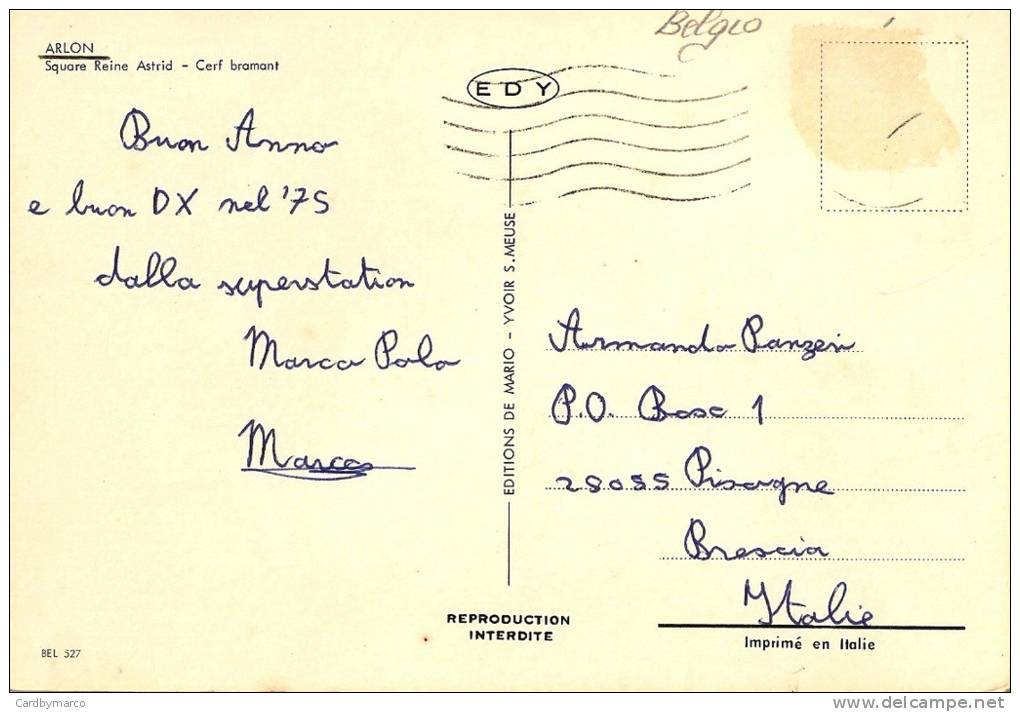 Belgio
ARLON
Square Reine Astrid - Cerf bramant
EDY
Buon Anno
e buon DX nel '75
dalla superstation
Marco Polo
Marco
EDITIONS DE MARIO - YVOIR S. MEUSE
Armando Panzeri
P.O. Box 1
25055 Pisogne
Brescia
Italie
REPRODUCTION
INTERDITE
Imprimé en Italie
BEL 527
Cardbymarco
delcampe.net